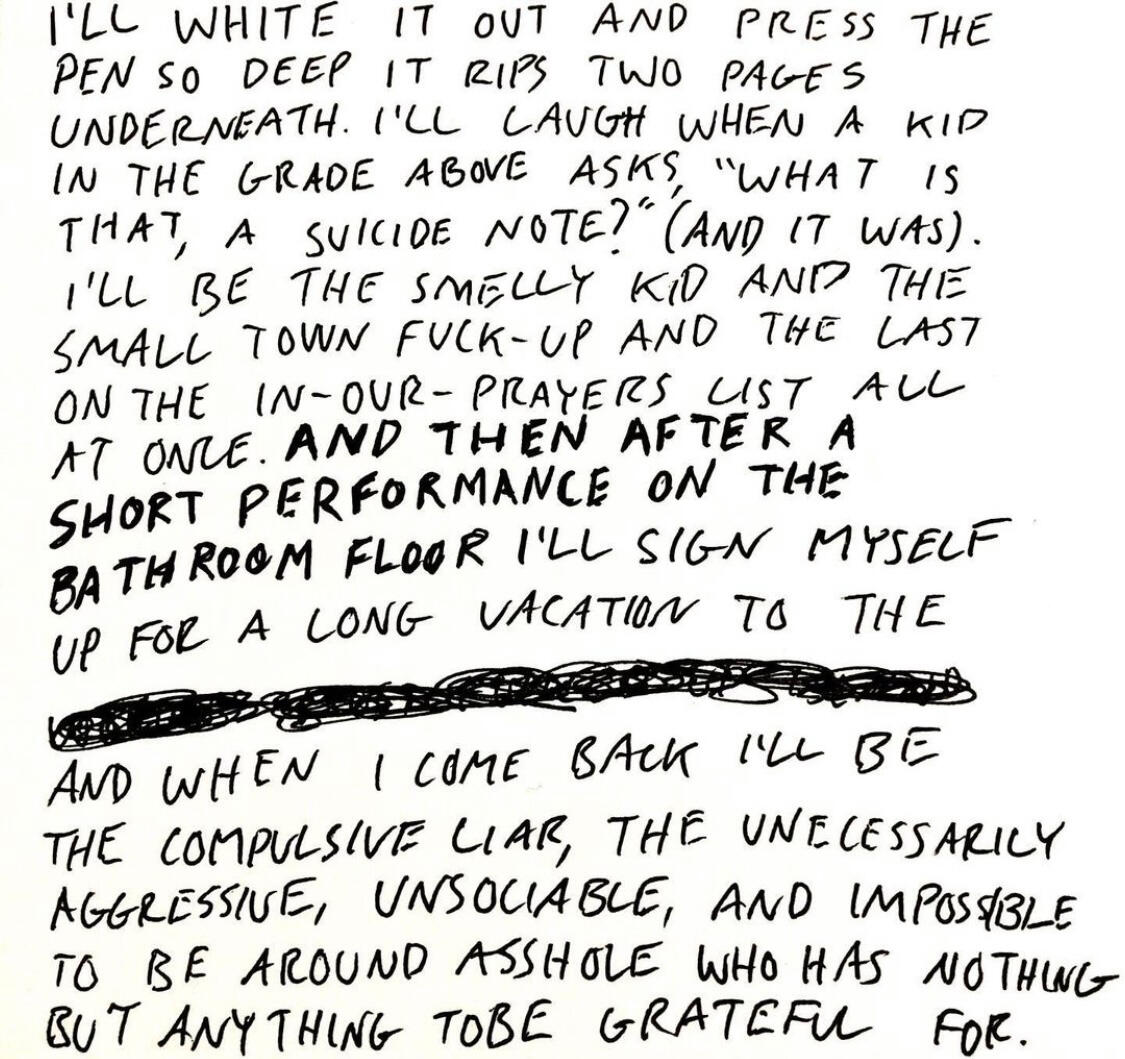 I'LL WHITE IT OUT AND PRESS THE
PEN SO DEEP IT RIPS TWO PAGES
UNDERNEATH. I'LL LAUGH WHEN A KID
IN THE GRADE ABOVE ASKS, "WHAT IS
THAT, A SUICIDE NOTE?" (AND IT WAS).
I'LL BE THE SMELLY KID AND THE
SMALL TOWN FUCK-UP AND THE LAST
ON THE IN-OUR-PRAYERS LIST ALL
AT ONCE. AND THEN AFTER A
SHORT PERFORMANCE ON THE
BATHROOM FLOOR I'LL SIGN MYSELF
UP FOR A LONG VACATION TO THE
AND WHEN I COME BACK I'LL BE
THE COMPULSIVE LIAR, THE UNECESSARILY
AGGRESSIVE, UNSOCIABLE, AND IMPOSSIBLE
TO BE AROUND ASSHOLE WHO HAS NOTHING
BUT ANYTHING TOBE GRATEFUL FOR.